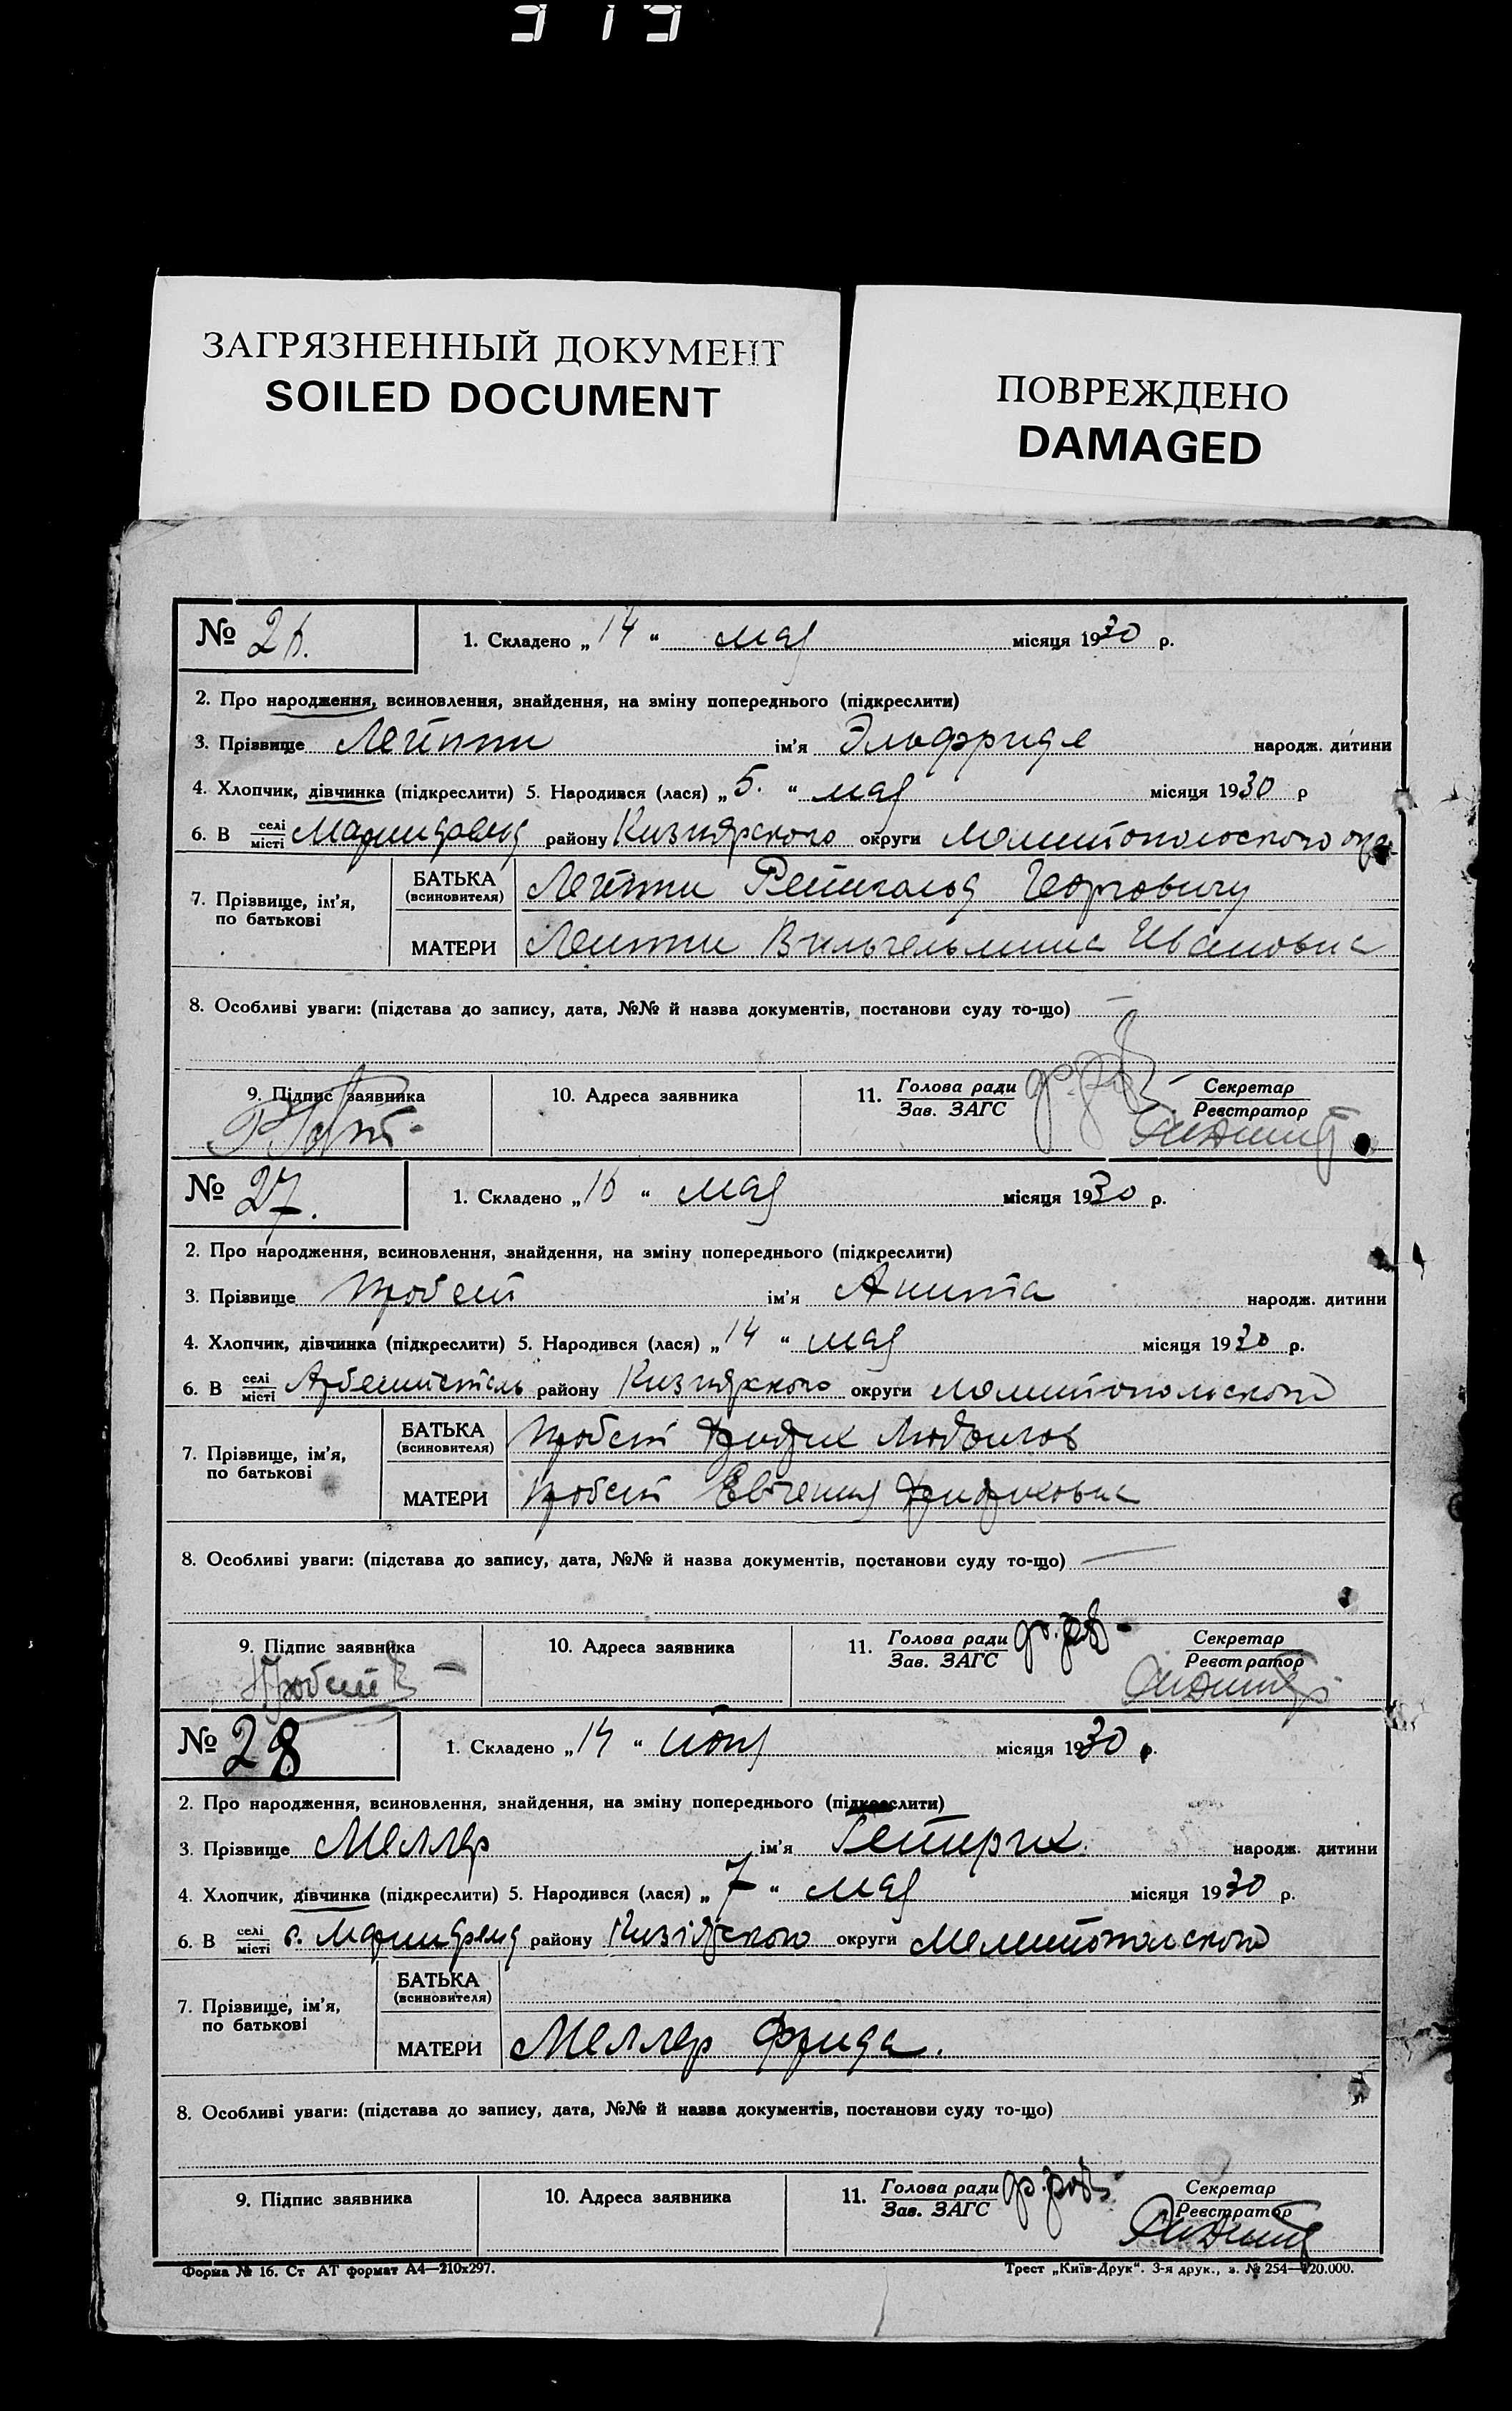 313
ЗАГРЯЗНЕННЫЙ ДОКУМЕНТ
SOILED DOCUMENT
ПОВРЕЖДЕНО
DAMAGED
№ 26.
1. Складено „14“ мая місяця 1930 р.
2. Про народження, всиновлення, знайдення, на зміну попереднього (підкреслити)
3. Прізвище ім'я Эльфрида народж. дитини
4. Хлопчик, дівчинка (підкреслити) 5. Народився (лася) „5.“ мая місяця 1930 р
6. В селі місті району Кизиярского округи Мелитопольского
7. Прізвище, ім'я, по батькові
БАТЬКА (всиновителя) Рейнгольд Георгович
МАТЕРИ Вильгельмина Ивановна
8. Особливі уваги: (підстава до запису, дата, №№ й назва документів, постанови суду то-що) —
9. Підпис заявника
10. Адреса заявника
11. Голова ради Зав. ЗАГС
Секретар Реєстратор
№ 27.
1. Складено „16“ мая місяця 1930 р.
2. Про народження, всиновлення, знайдення, на зміну попереднього (підкреслити)
3. Прізвище Пробст ім'я Анита народж. дитини
4. Хлопчик, дівчинка (підкреслити) 5. Народився (лася) „14“ мая місяця 1930 р.
6. В селі місті району Кизиярского округи Мелитопольского
7. Прізвище, ім'я, по батькові
БАТЬКА (всиновителя) Пробст Фридрих Людвигов
МАТЕРИ Пробст Евгения Фридриховна
8. Особливі уваги: (підстава до запису, дата, №№ й назва документів, постанови суду то-що) —
9. Підпис заявника
10. Адреса заявника
11. Голова ради Зав. ЗАГС
Секретар Реєстратор
№ 28
1. Складено „14“ июня місяця 1930 р.
2. Про народження, всиновлення, знайдення, на зміну попереднього (підкреслити)
3. Прізвище Меллер ім'я Гейнрих народж. дитини
4. Хлопчик, дівчинка (підкреслити) 5. Народився (лася) „7“ мая місяця 1930 р.
6. В селі місті с. району Кизиярского округи Мелитопольского
7. Прізвище, ім'я, по батькові
БАТЬКА (всиновителя)
МАТЕРИ Меллер Фрида.
8. Особливі уваги: (підстава до запису, дата, №№ й назва документів, постанови суду то-що)
9. Підпис заявника
10. Адреса заявника
11. Голова ради Зав. ЗАГС
Секретар Реєстратор
Форма № 16. Ст АТ формат А4—210x297.
Трест „Київ-Друк“. 3-я друк., з. № 254—120.000.